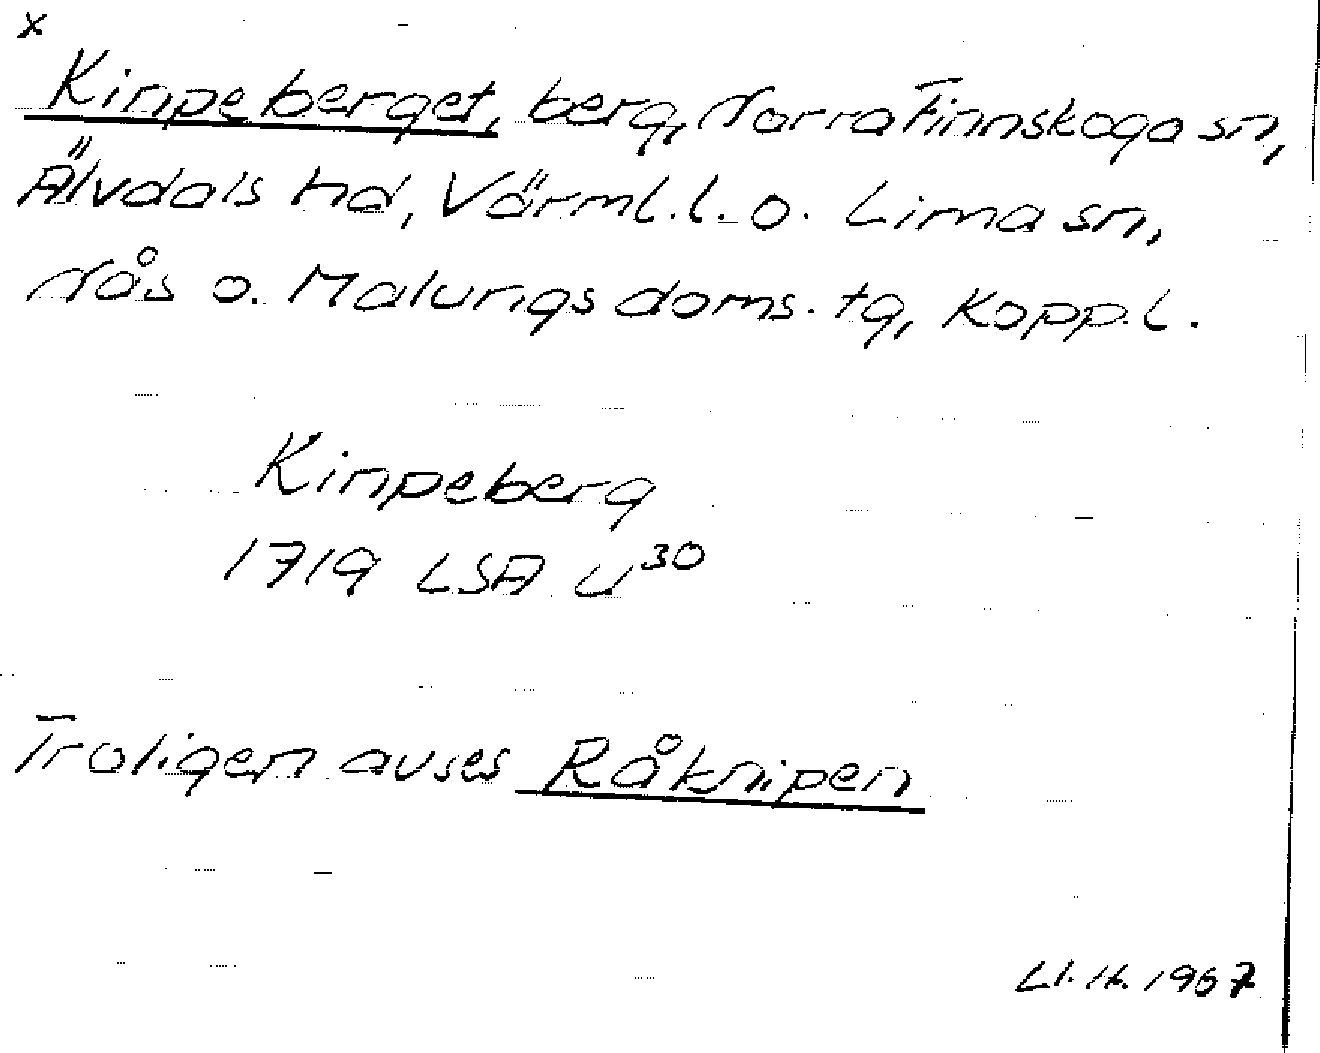 x
Kinpeberget, berg, Norra Finnskoga sn,
Älvdals hd, Värml. l. o. Lima sn,
Nås o. Malungs doms. tg, Kopp. l.
Kinpeberg
1719 LSA U30
Troligen avses Råknipen
1967